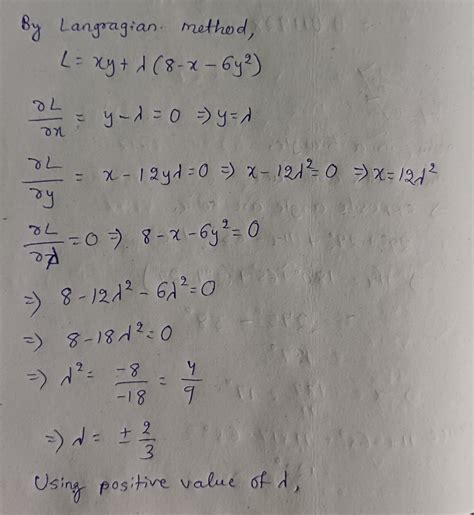 By Langragian method,
L = xy + λ (8 - x - 6y²)
∂L/∂x = y - λ = 0 ⇒ y = λ
∂L/∂y = x - 12yλ = 0 ⇒ x - 12λ² = 0 ⇒ x = 12λ²
∂L/∂λ = 0 ⇒ 8 - x - 6y² = 0
⇒ 8 - 12λ² - 6λ² = 0
⇒ 8 - 18λ² = 0
⇒ λ² = -8/-18 = 4/9
⇒ λ = ± 2/3
Using positive value of λ,